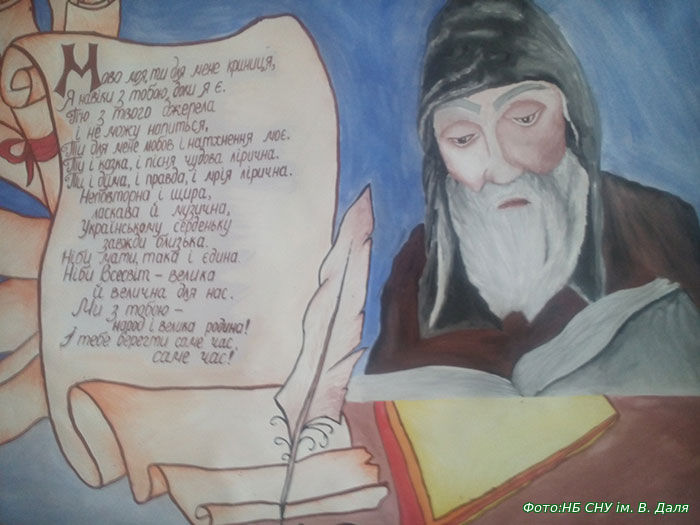 Мово моя, ти для мене криниця,
Я навіки з тобою, доки я є.
П'ю з твого джерела
і не можу напиться,
Ти для мене любов і натхнення моє.
Ти і казка, і пісня чудова лірична.
Ти і дума, і правда, і мрія лірична.
Неповторна і щира,
ласкава й музична,
Українському серденьку
завжди близька.
Ніби мати, така і єдина.
Ніби Всесвіт - велика
й велична для нас.
Ми з тобою -
народ і велика родина!
І тебе берегти саме час,
саме час!
Фото:НБ СНУ ім. В. Даля